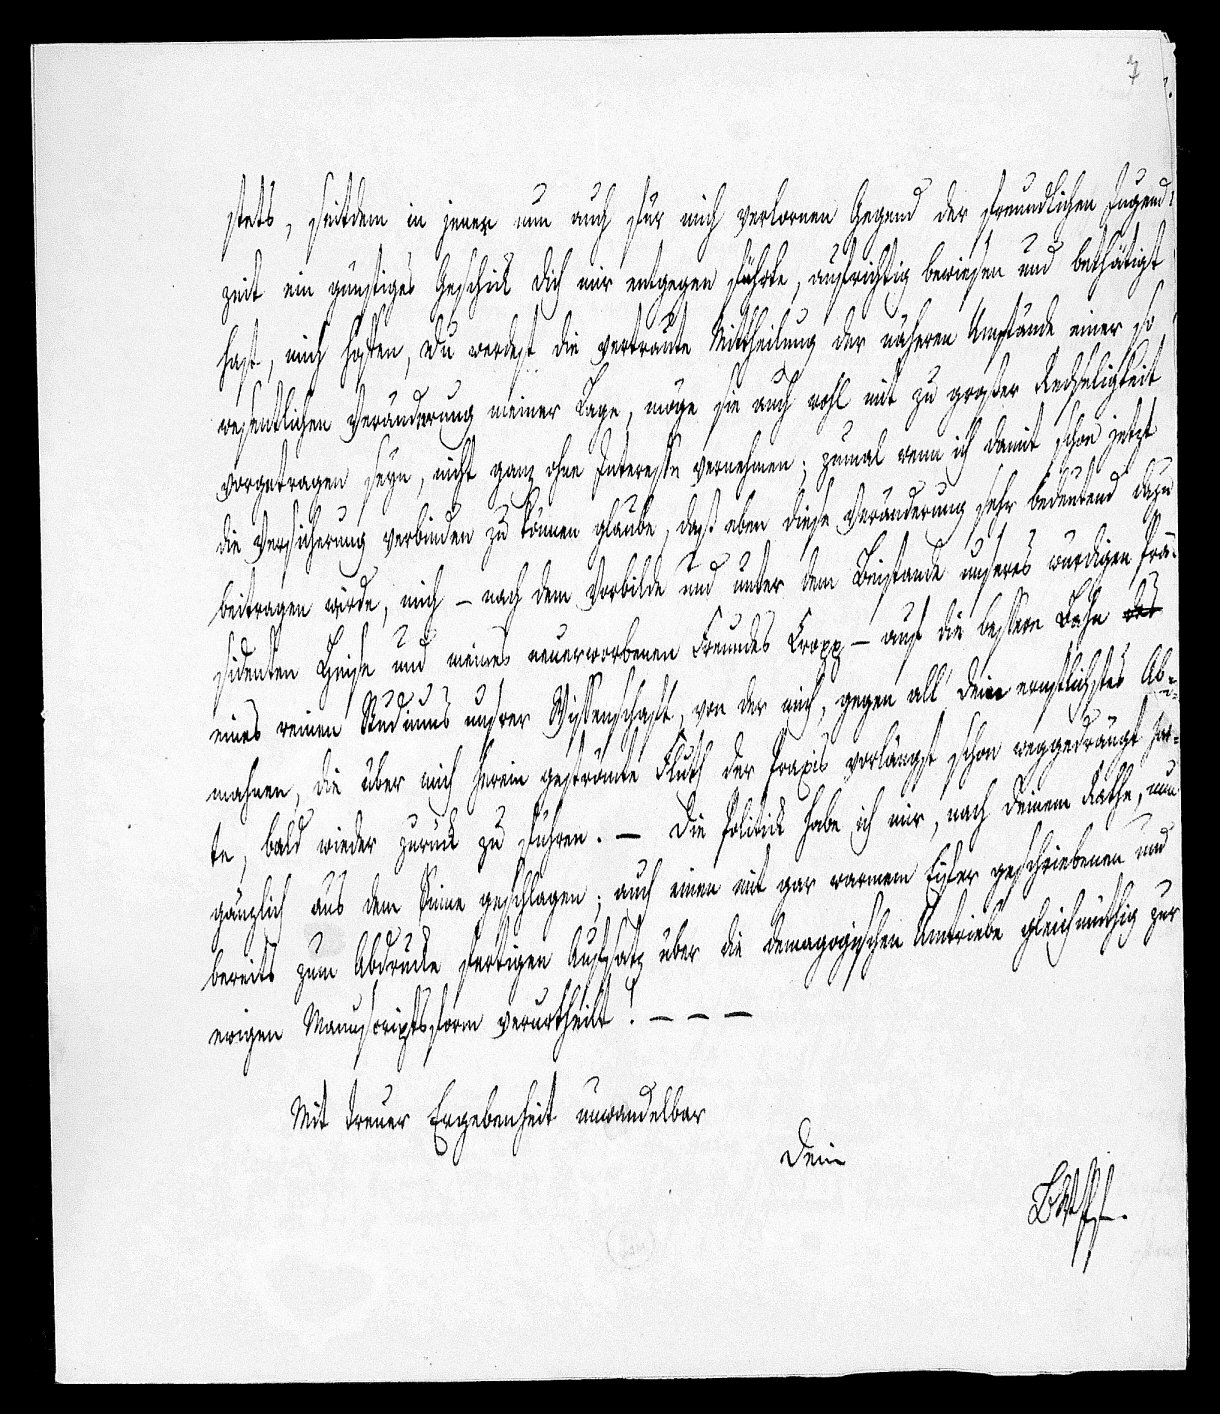 7
stets, seitdem in jener nun auch für mich verlornen Gegend der freundlichen Jugend-
zeit ein günstiges Geschick Dich mir entgegen führte, aufrichtig bewiesen und bethätigt
hast, mich hoffen, Du werdest die vertraute Mittheilung der näheren Umstände einer so
wesentlichen Veränderung meiner Lage, möge sie auch wohl mit zu großer Redseligkeit
vorgetragen seyn, nicht ganz ohne Interesse vernehmen; zumal wenn ich damit schon jetzt
die Versicherung verbinden zu können glaube, daß eben diese Veränderung sehr bedeutend dazu
beitragen wirde, mich – nach dem Vorbilde und unter dem Beistande unseres würdigen Prä-
sidenten Heise und meines neuerworbenen Freundes Cropp – auf die bessere Bahn des
eines reinen Studiums unsrer Wissenschaft, von der mich, gegen all' Dein ernstlichstes Ab-
mahnen, die über mich herein geströmte Fluth der Praxis vorlängst schon weggedrängt hat-
te, bald wieder zurück zu führen. – Die Politick habe ich mir, nach Deinem Rathe, nun
gänzlich aus dem Sinne geschlagen; auch einen mit gar warmem Eifer geschriebenen und
bereits zum Abdrucke fertigen Aufsatz über die demagogischen Umtriebe gleichmüthig zur
ewigen Manuscriptsform verurtheilt! – – –
Mit treuer Ergebenheit unwandelbar
Dein